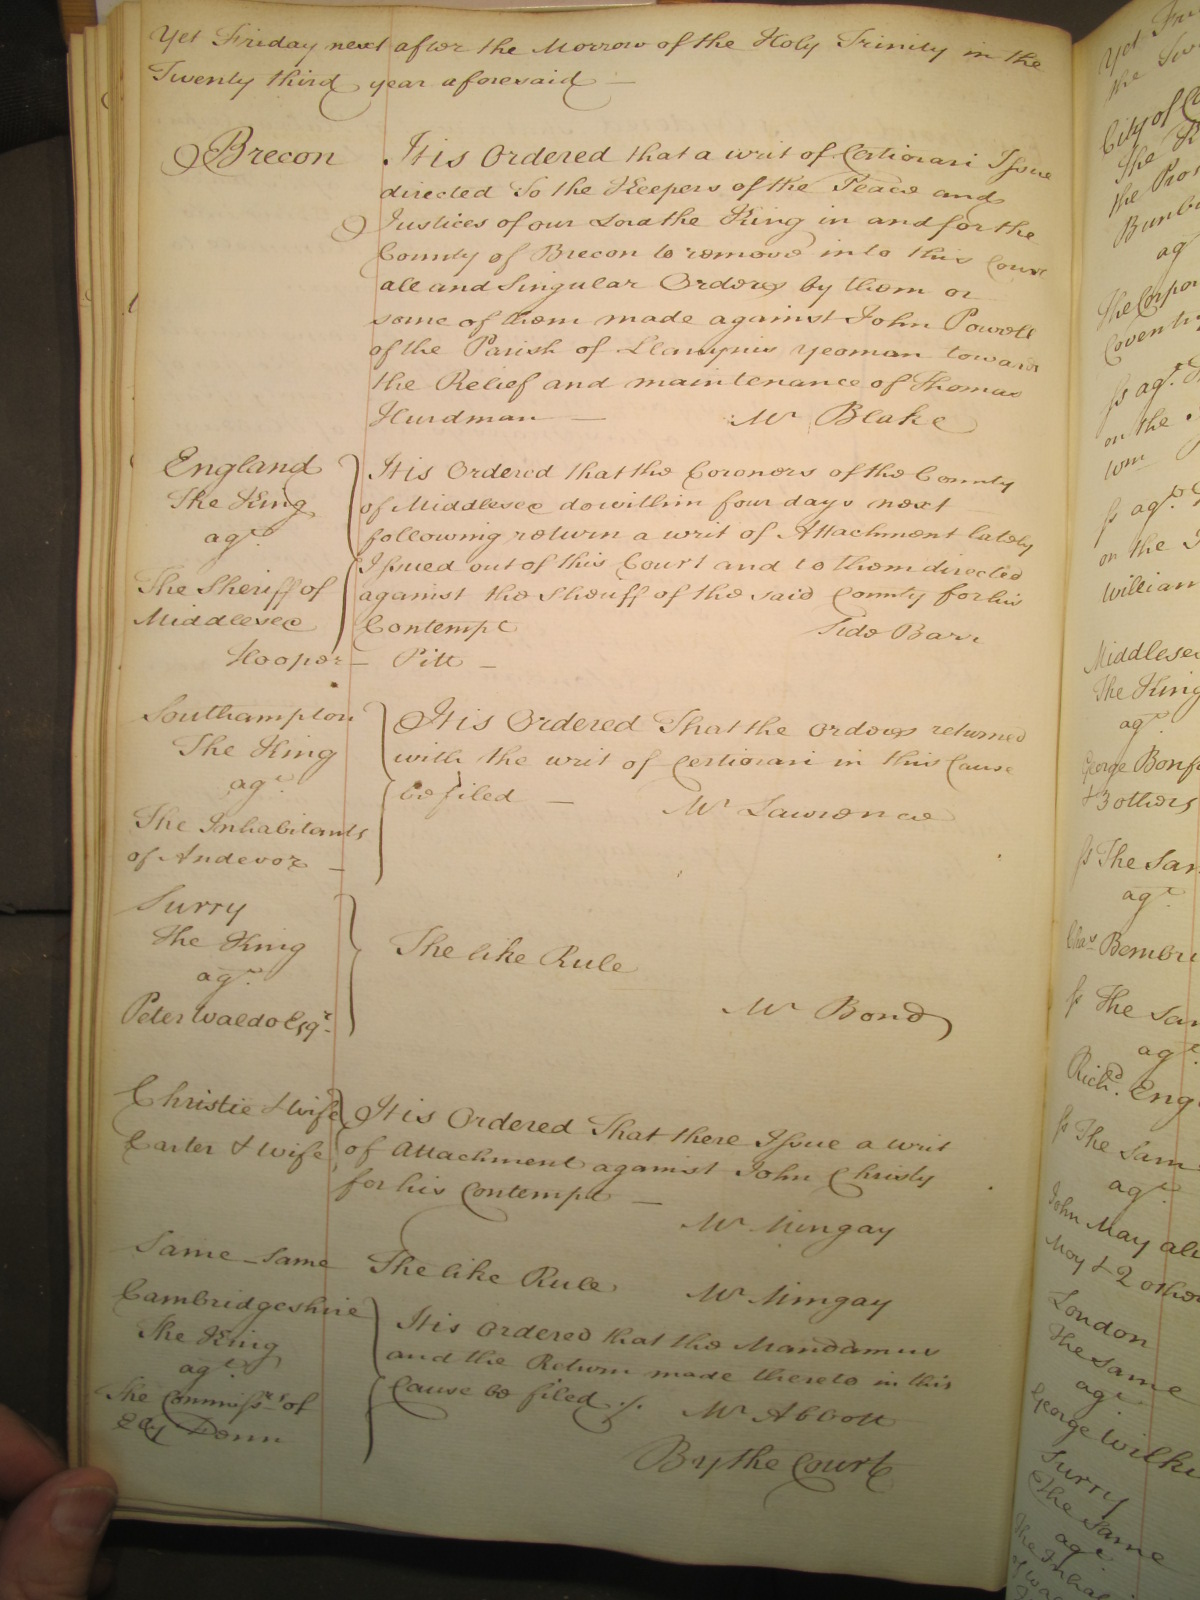 Yet Friday next after the Morrow of the Holy Trinity in the
Twenty third year aforesaid —
Brecon It is Ordered that a writ of Certiorari Issue
directed To the Keepers of the Peace and
Justices of our Lord the King in and for the
County of Brecon to remove into this Court
all and Singular Orders by them or
some of them made against John Powell
of the Parish of yeoman towards
the Relief and maintenance of Thomas
Hurdman — Mr Blake
England It is Ordered that the Coroners of the County
The King of Middlesex do within four days next
agt. following return a writ of Attachment lately
Issued out of this Court and to them directed
The Sheriff of against the Sheriff of the said County for his
Middlesex Contempt Side Bar
Hooper — Pitt —
Southampton It is Ordered That the Orders returned
The King with the writ of Certiorari in this Cause
agt. be filed — Mr Lawrence
The Inhabitants
of Andevor —
Surry
The King The like Rule
agt.
Peter Waldo Esqr. Mr Bond
Christie & wife It is Ordered That there Issue a writ
Carter & wife of Attachment against John Christy
for his Contempt —
Mr Mingay
Same — Same The like Rule Mr Mingay
Cambridgeshire It is Ordered that the Mandamus
The King and the Return made thereto in this
agt. Cause be filed Mr Abbott
The Commissrs. of
Ely
By the Court
City of
The
the
agt
The
Coventry
ss agt.
on the
ss agt.
on the
William
Middlesex
The King
agt.
George
& 3 others
ss The Sam
agt.
Chas
ss The Sam
agt
Richd. Eng
ss The Sam
agt.
John May
May & 2 others
London
The Same
agt
George
Surry
The Same
agt
The